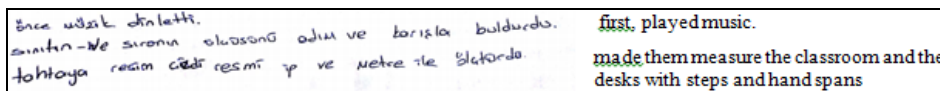 önce müzik dinletti.
sınıfın ve sıranın ölçüsünü adım ve karışla buldurdu.
tahtaya resim çizdi resmi ip ve metre ile ölçtürdü.
first, played music.
made them measure the classroom and the
desks with steps and hand spans